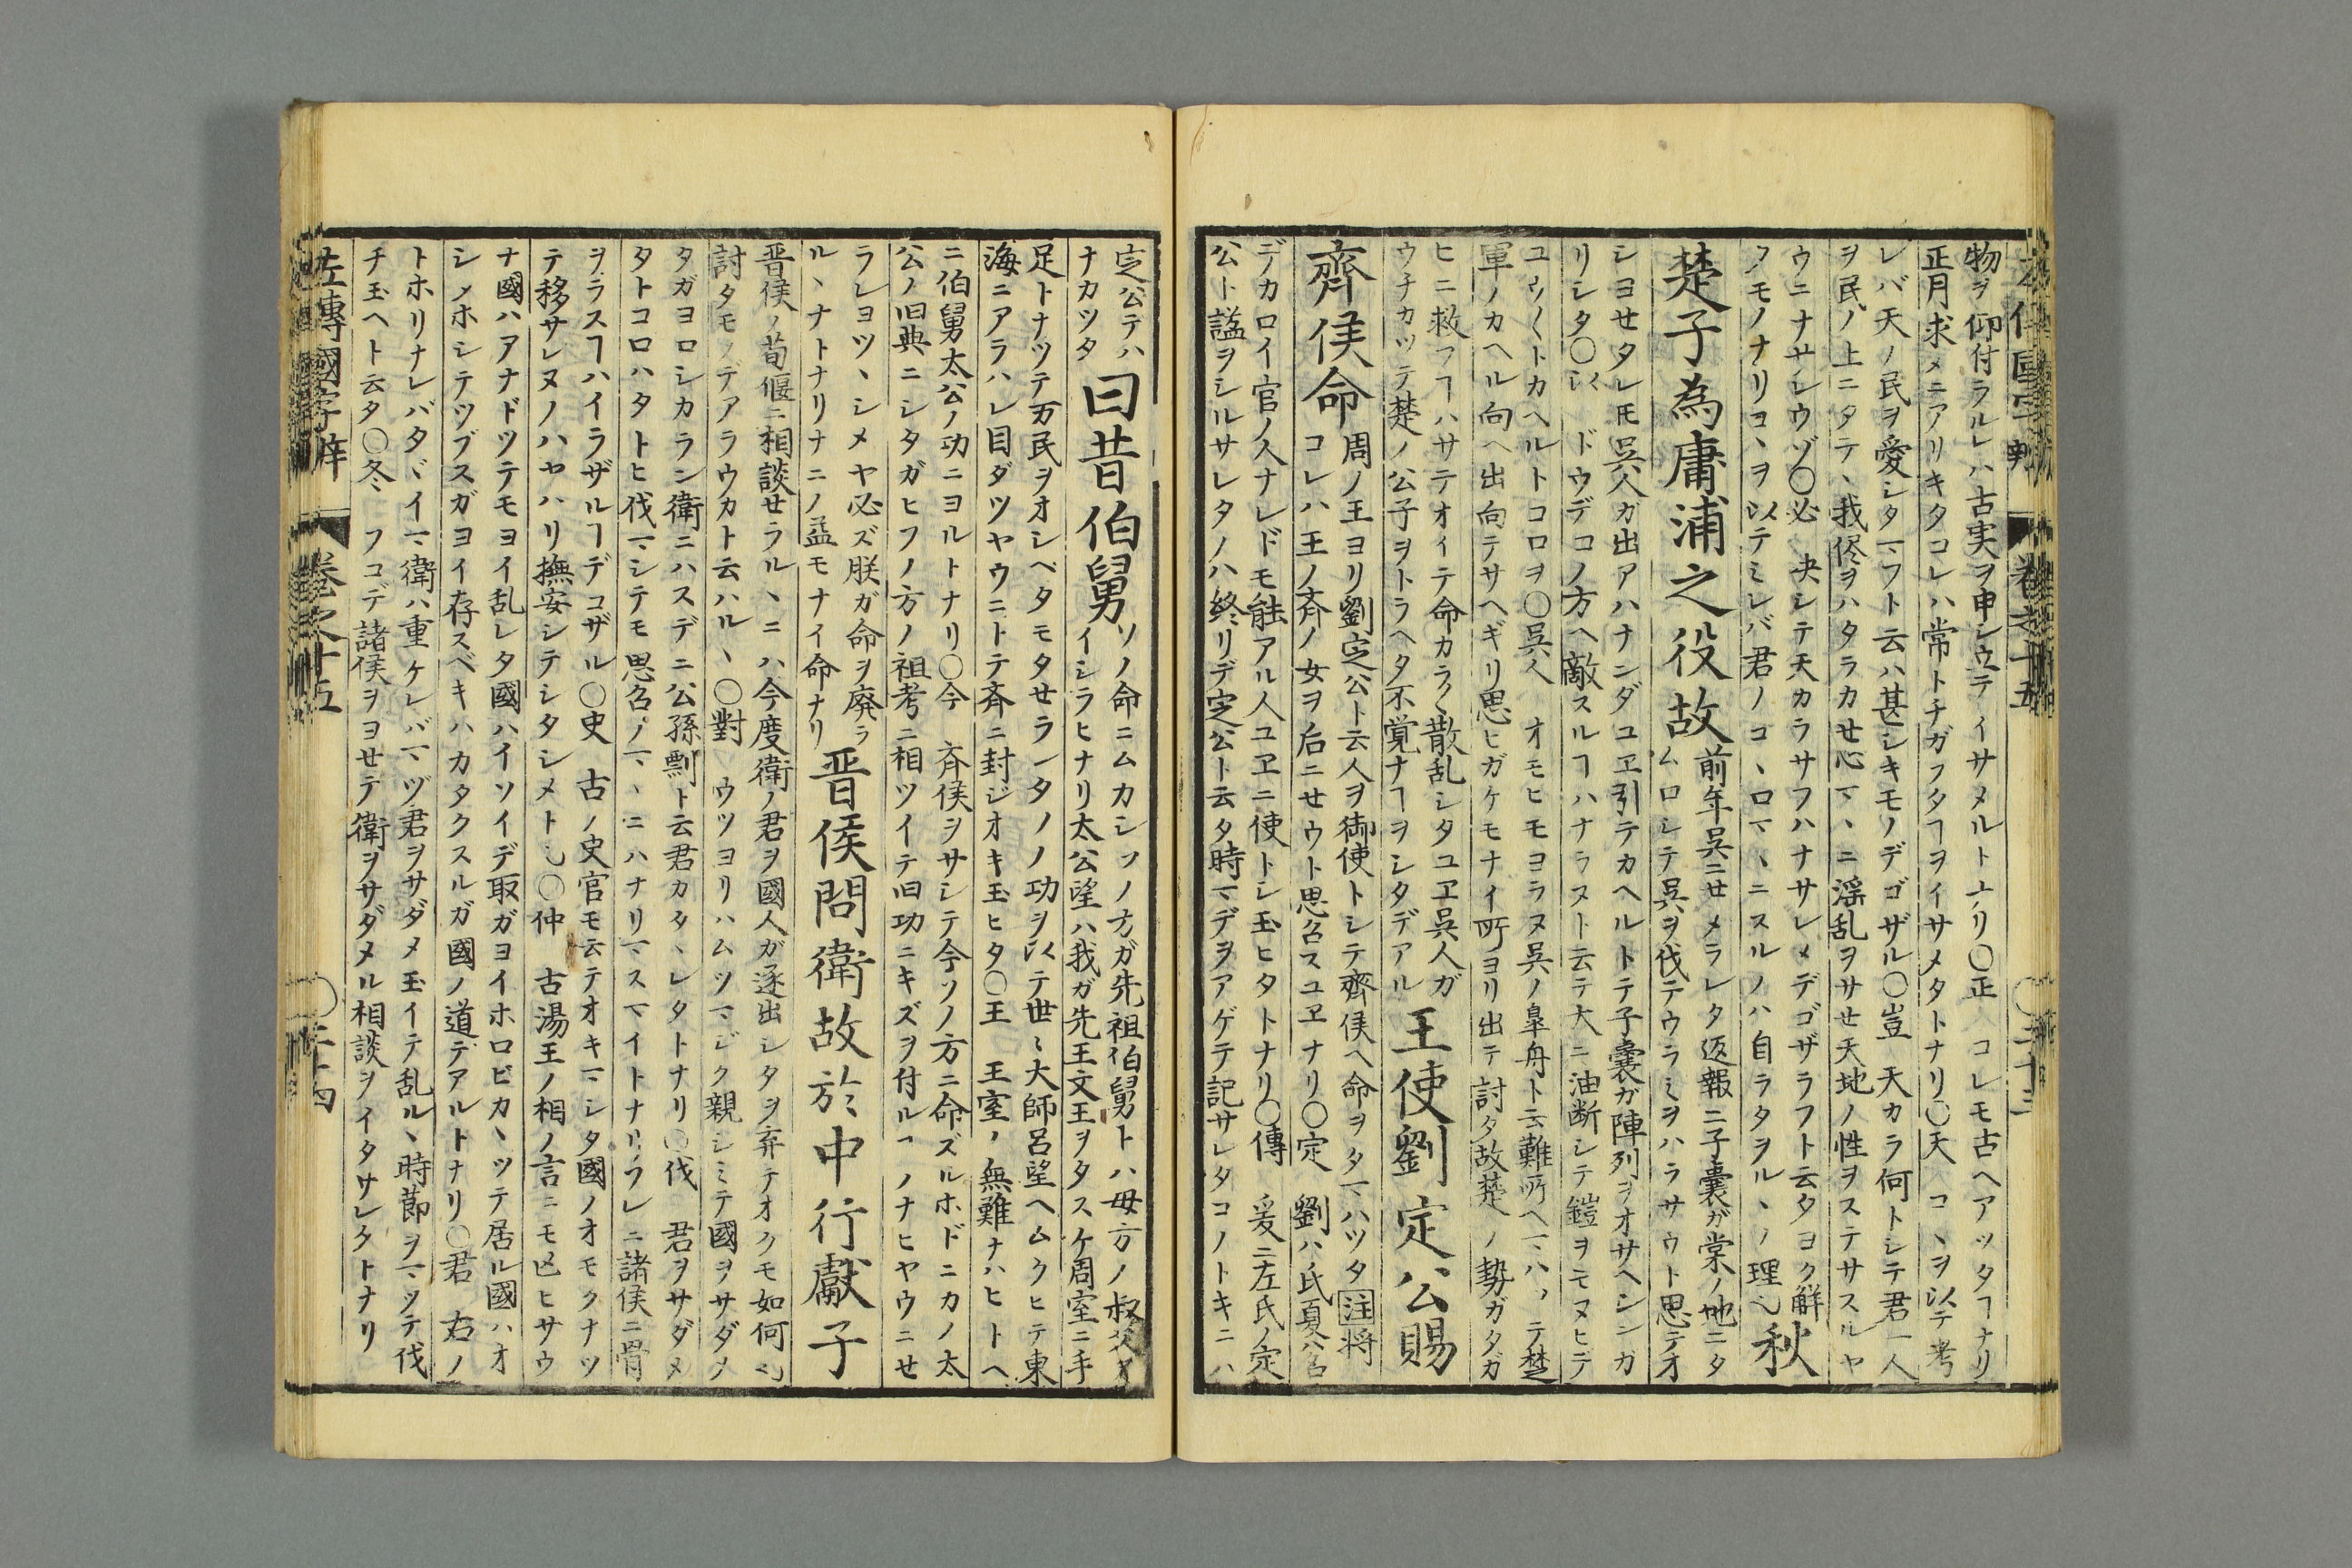 左傳國字辯 卷之十五 〇三十三
物ヲ仰付ラルレハ古実ヲ申シ立テイサメルトナリ〇正 コレモ古ヘアッタヿナリ
正月求メニアリキタコレハ常トチガフタヿヲイサメタトナリ〇天 コヽヲ以テ考
レバ天ノ民ヲ愛シタマフト云ハ甚シキモノデゴザル〇豈 天カラ何トシテ君一人
ヲ民ノ上ニタテヽ我侭ヲハタラカせ心マヽニ淫乱ヲサせ天地ノ性ヲステサスルヤ
ウニナサレウゾ〇必 决シテ天カラサフハナサレメデゴザラフト云タヨク解
タモノナリコヽヲ以テミレバ君ノコヽロマヽニスルノハ自ラタヲルヽノ理也
秋
楚子為庸浦之役故
前年呉ニせメラレタ返報ニ子囊ガ棠ノ地ニタ
ムロシテ呉ヲ伐テウラミヲハラサウト思テオ
シヨせタレ𪜈呉人ガ出アハナンダユヱ引テカヘルトテ子囊ガ陣列ヲオサヘシンガ
リシタ〇以 ドウデコノ方ヘ敵スルヿハナラヌト云テ大ニ油断シテ鎧ヲモヌヒデ
ユリ〳〵トカヘルトコロヲ〇呉人 オモヒモヨラヌ呉ノ皐舟ト云難所ヘマハッテ楚
軍ノカヘル向ヘ出向テサヘギリ思ヒガケモナイ所ヨリ出テ討タ故楚ノ勢ガタガ
ヒニ救フヿハサテオイテ命カラ〴〵散乱シタユヱ呉人ガ
ウチカッテ楚ノ公子ヲトラヘタ不覚ナヿヲシタデアル
王使劉定公賜
齊侯命
周ノ王ヨリ劉定公ト云人ヲ御使トシテ齊侯ヘ命ヲタマハツタ注将
コレハ王ノ斉ノ女ヲ后ニせウト思召スユヱナリ〇定 劉ハ氏夏ハ名
デカロイ官ノ人ナレドモ能アル人ユヱニ使トシ玉ヒタトナリ〇傳 爰ニ左氏ノ定
公ト謚ヲシルサレタノハ終リデ定公ト云タ時マデヲアゲテ記サレタコノトキニハ
定公デハ
ナカツタ
曰昔伯舅
ソノ命ニムカシソノ方ガ先祖伯舅トハ母方ノ叔父ヲ
イシラヒナリ太公望ハ我ガ先王文王ヲタスケ周室ニ手
足トナツテ万民ヲオシベタモタせラシタノ功ヲ以テ世〻大師呂望ヘムクヒテ東
海ニアラハレ目ダツヤウニトテ斉ニ封ジオキ玉ヒタ〇王 王室ノ無難ナハヒトヘ
ニ伯舅太公ノ功ニヨルトナリ〇今 斉侯ヲサシテ今ソノ方ニ命ズルホドニカノ太
公ノ旧典ニシタガヒフノ方ノ祖考ニ相ツイテ旧功ニキズヲ付ルヿノナヒヤウニせ
ラレヨツヽシメヤ必ズ朕ガ命ヲ廃ラ
ルヽナトナリナニノ益モナイ命ナリ
晋侯問衛故於中行獻子
晋侯ノ荀偃ニ相談せラルヽニハ今度衛ノ君ヲ國人ガ逐出シタヲ弃テオクモ如何也
討タモノデアラウカト云ハルヽ〇對 ウツヨリハムツマジク親シミテ國ヲサダメ
タガヨロシカラン衛ニハスデニ公孫剽ト云君カタヽレタトナリ〇伐 君ヲサダメ
タトコロハタトヒ伐マシテモ思召ノマヽニハナリマスマイトナリソレニ諸侯ニ骨
ヲラスヿハイラザルヿデコザル〇史 古ノ史官モ云テオキマシタ國ノオモクナツ
テ移サレヌノハヤハリ撫安シテシタシメト也〇仲 古湯王ノ相ノ言ニモ亡ヒサウ
ナ國ハアナドツテモヨイ乱レタ國ハイソイデ取ガヨイホロビカヽツテ居ル國ハオ
シメホシテツブスガヨイ存スベキハカタクスルガ國ノ道デアルトナリ〇君 右ノ
トホリナレバタヾイマ衛ハ重ケレバマヅ君ヲサダメ玉イテ乱ルヽ時節ヲマツテ伐
チ玉ヘト云タ〇冬 フコデ諸侯ヲヨせテ衛ヲサダメル相談ヲイタサレタトナリ
左傳國字辯 卷之十五 〇三十四